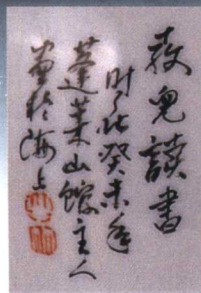 教兒讀書
時在癸未年
蓬萊山館主人
畫於海上